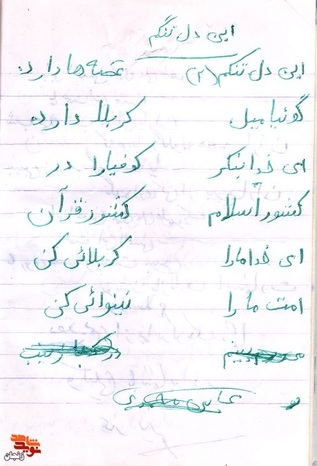 این دل تنگم
این دل تنگم (۲) غصه ها دارد
گوئیا میل کربلا دارد
ای خدا بنگر کوفیارا در
کشور اسلام کشور قرآن
ای خدا مارا کربلائی کن
امت مارا نینوائی کن
در زینب